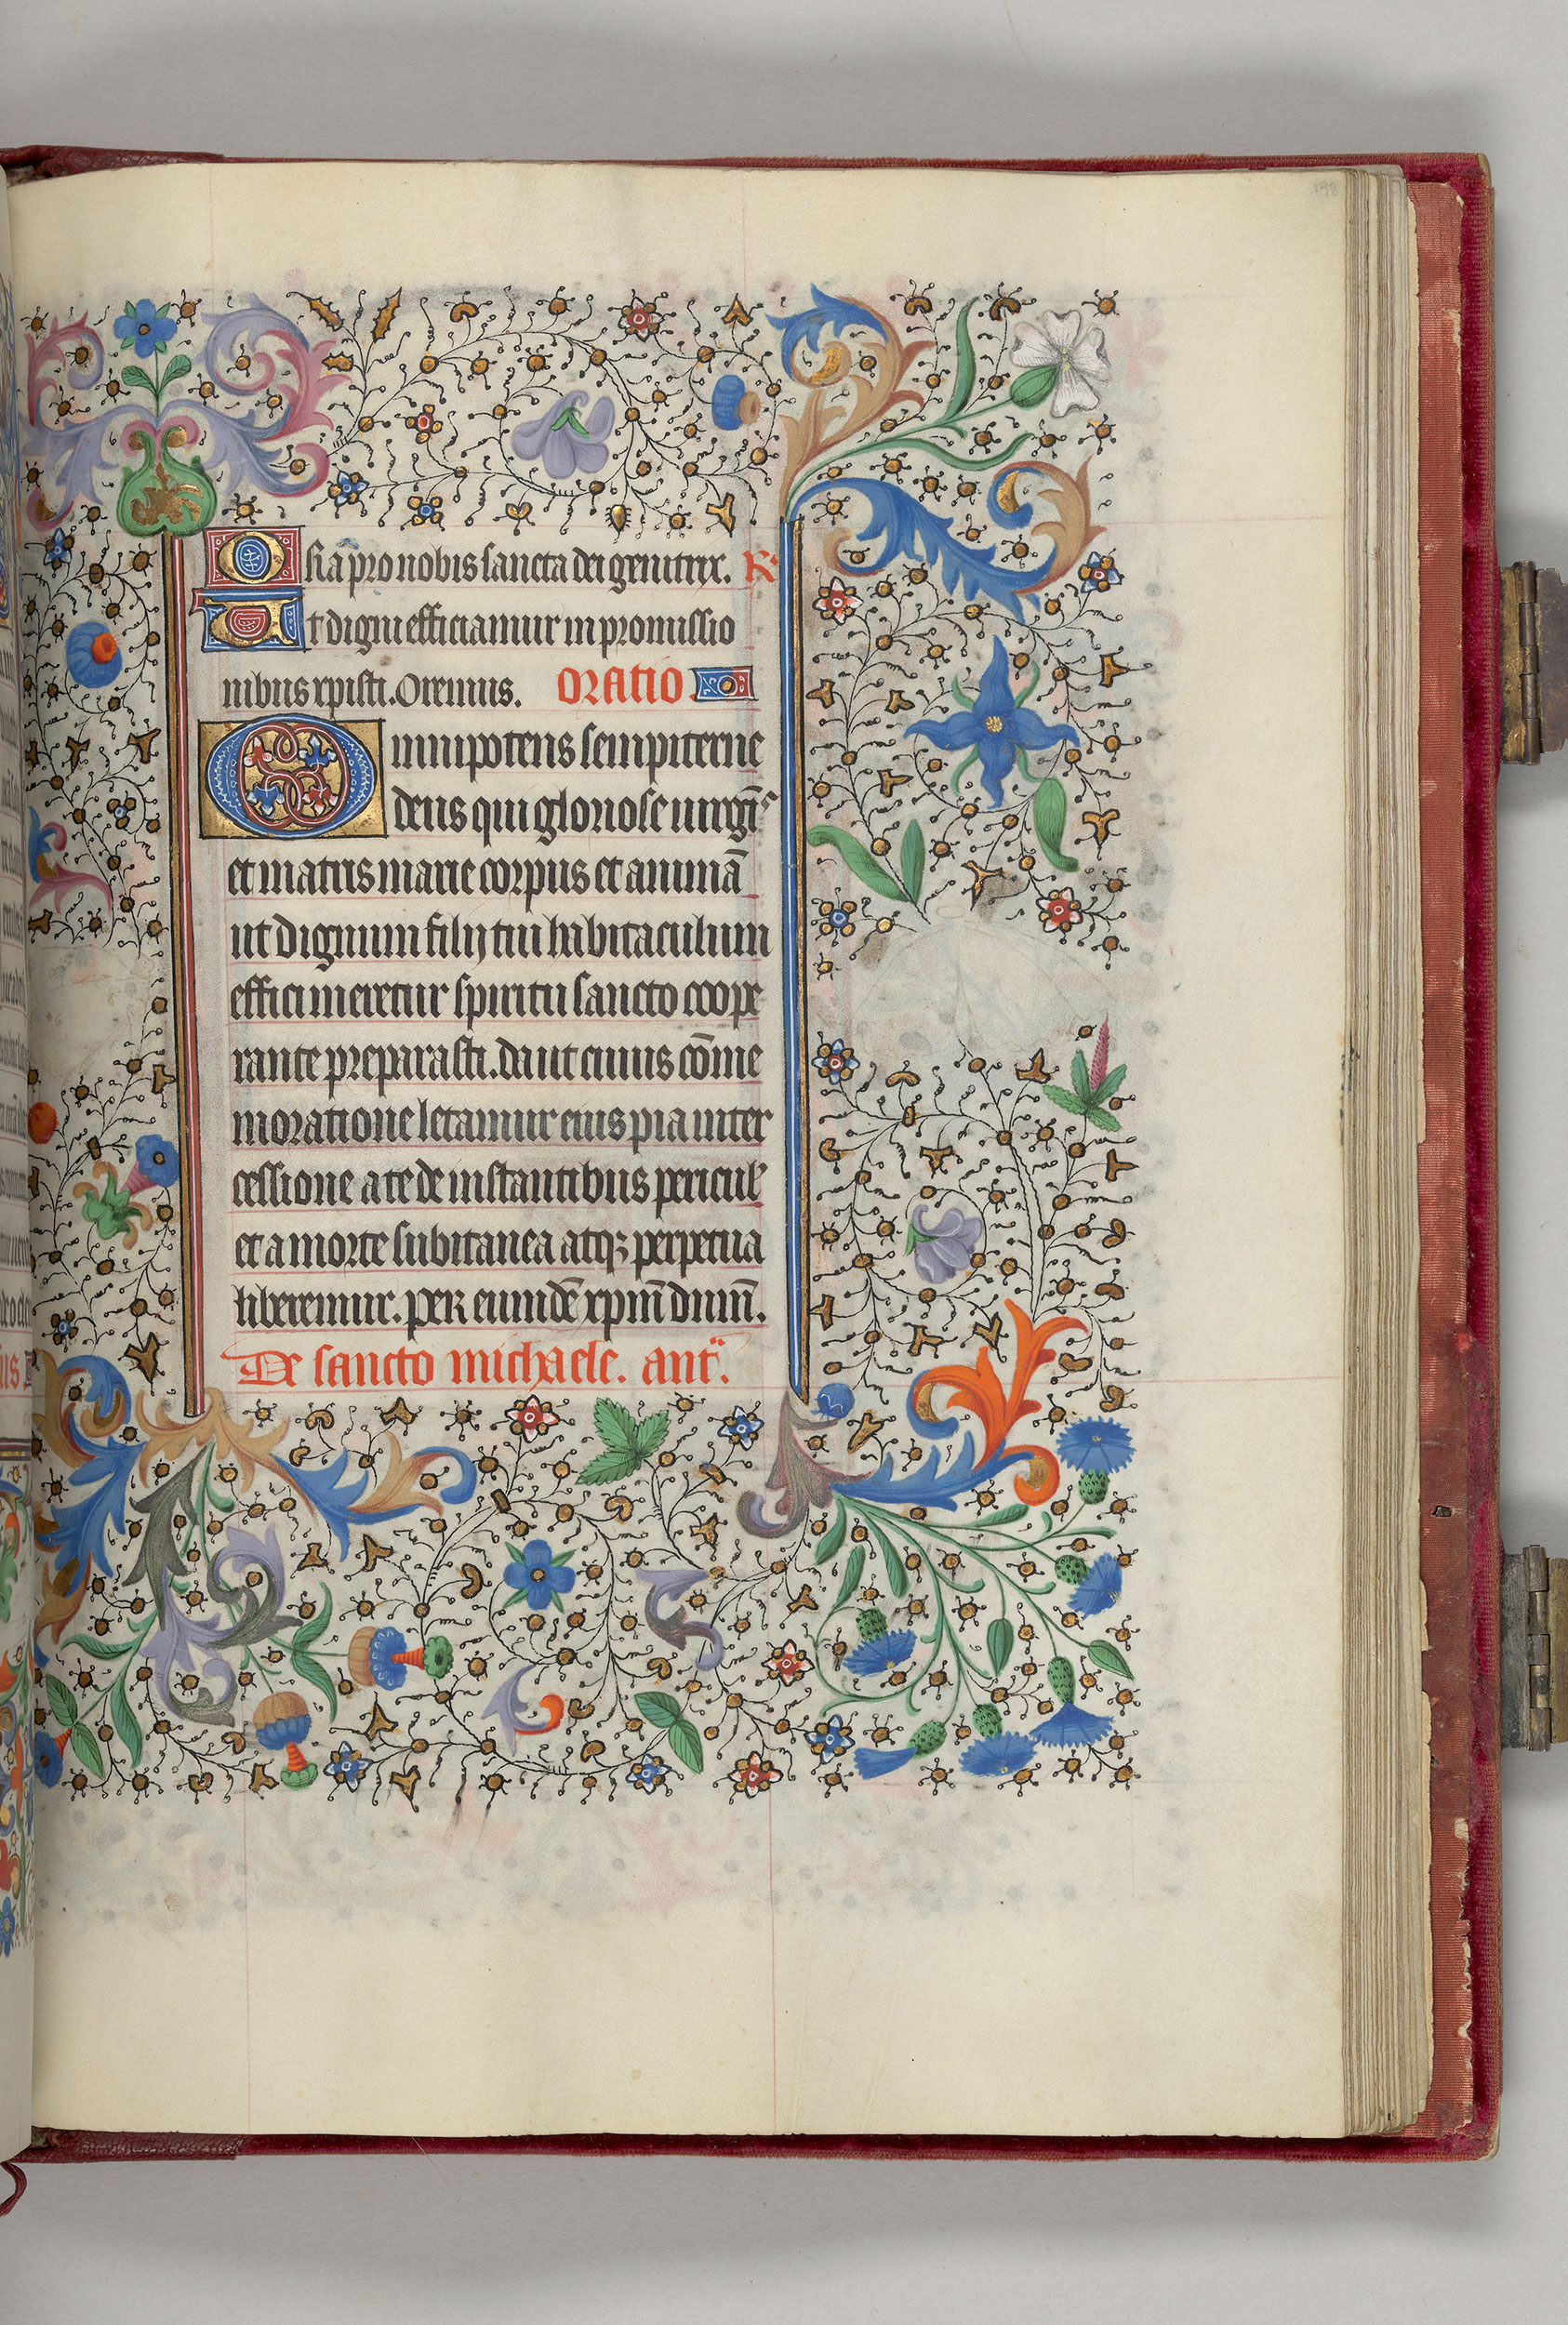 Ora pro nobis sancta dei genitrix. R
Ut digni efficiamur in promissio
nibus xpisti. Oremus. Oratio
Omnipotens sempiterne
deus qui gloriose uirgīs
et matris marie corpus et animā
ut dignum filij tui habitaculum
effici mereretur spiritu sancto coope
rante preparasti. da ut cuius cōme
moratione letamur eius pia inter
cessione a te de instantibus pericul'
et a morte subitanea atqz perpetua
liberemur. per eumdē xpm̄ dnm̄.
De sancto michaele. ant.